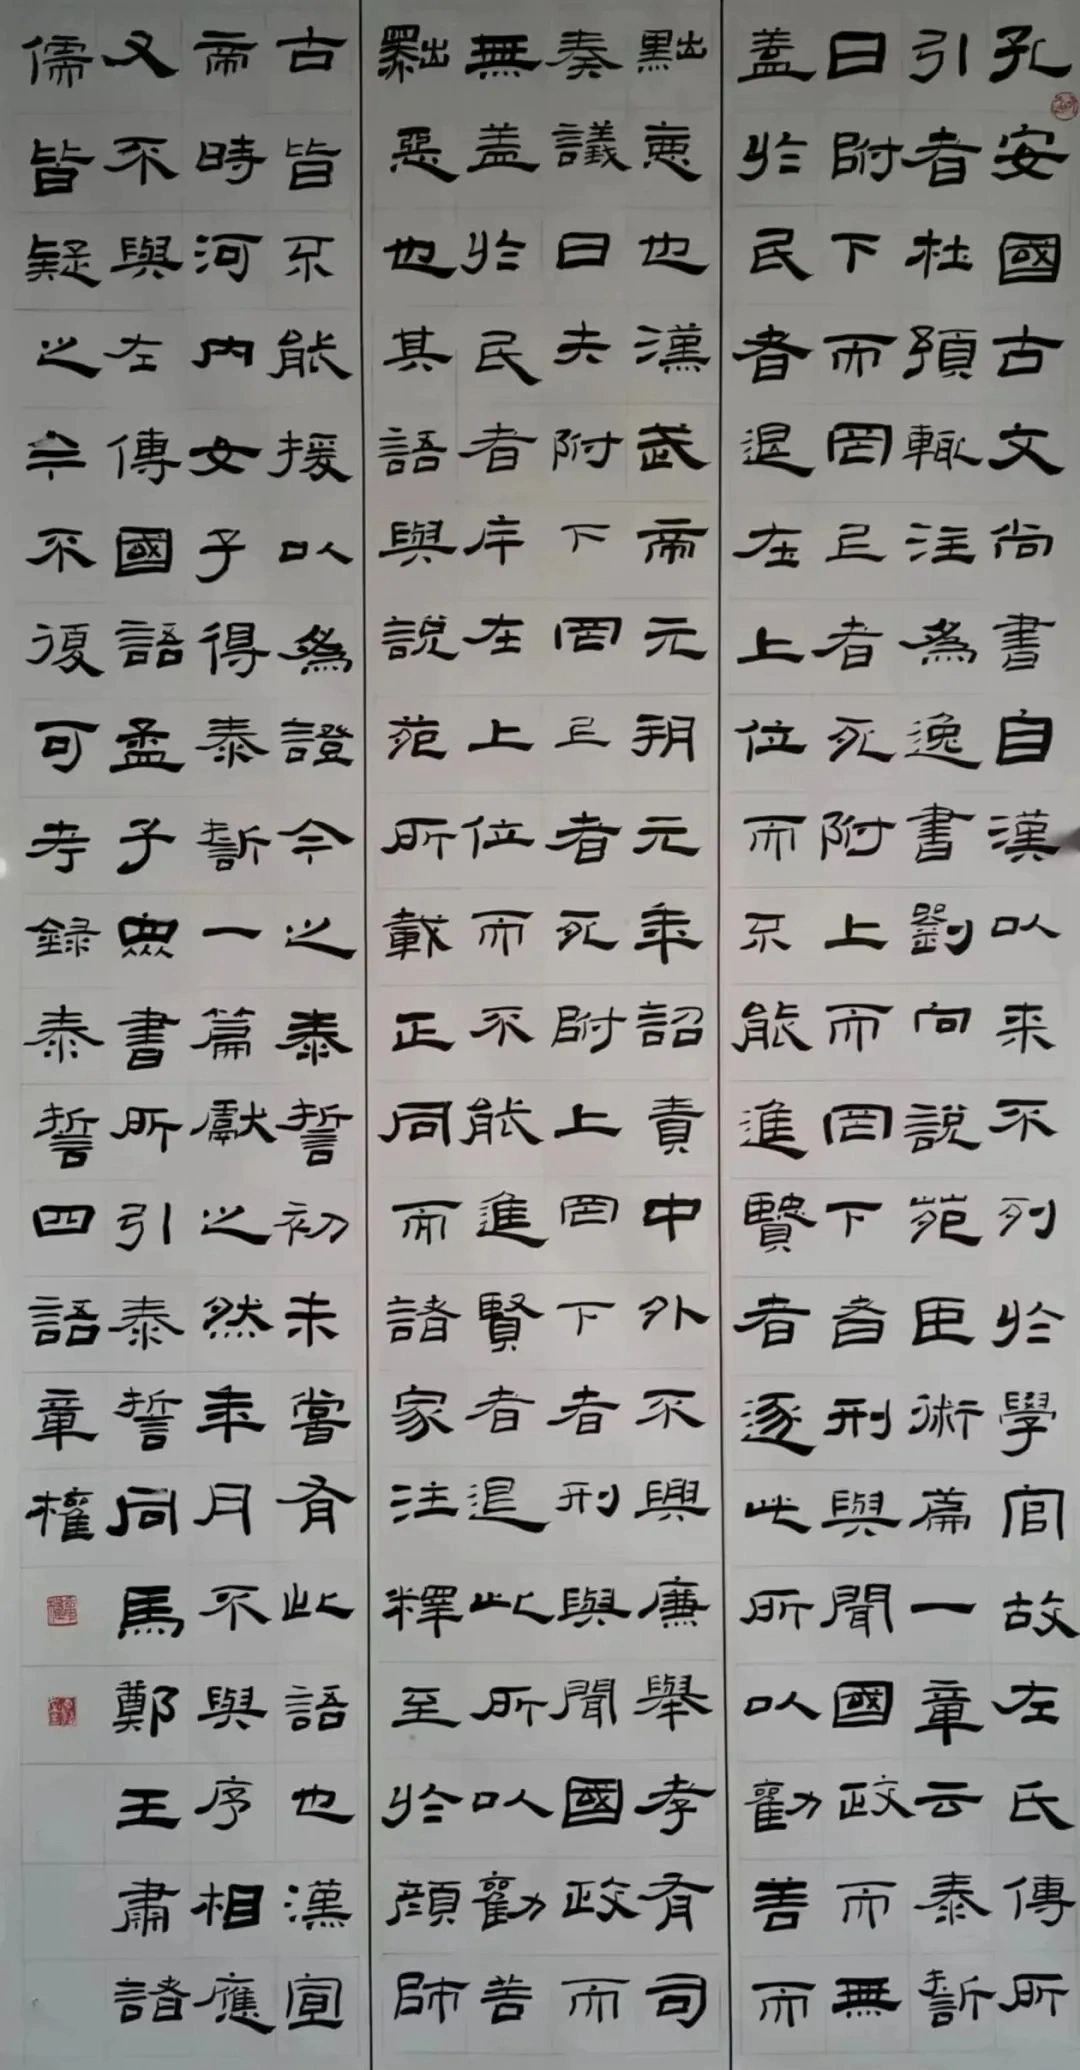 孔安國古文尚書自漢以来不列於學官故左氏傳所
引者杜預輒注為逸書劉向說苑臣術篇一章云泰誓
曰附下而罔上者死附上而罔下者刑與聞國政而無
蓋於民者退在上位而不能進賢者逐此所以勸善而
黜惡也漢武帝元朔元年詔責中外不興廉舉孝有司
奏議曰夫附下罔上者死附上罔下者刑與聞國政而
無盖於民者斥在上位而不能進賢者退此所以勸善
黜惡也其語與說苑所載正同而諸家注釋至於顏師
古皆不能援以為證今之泰誓初未嘗有此語也漢宣
帝時河内女子得泰誓一篇獻之然年月不與序相應
又不與左傳國語孟子眾書所引泰誓同馬鄭王肅諸
儒皆疑之今不復可考録泰誓四語章權